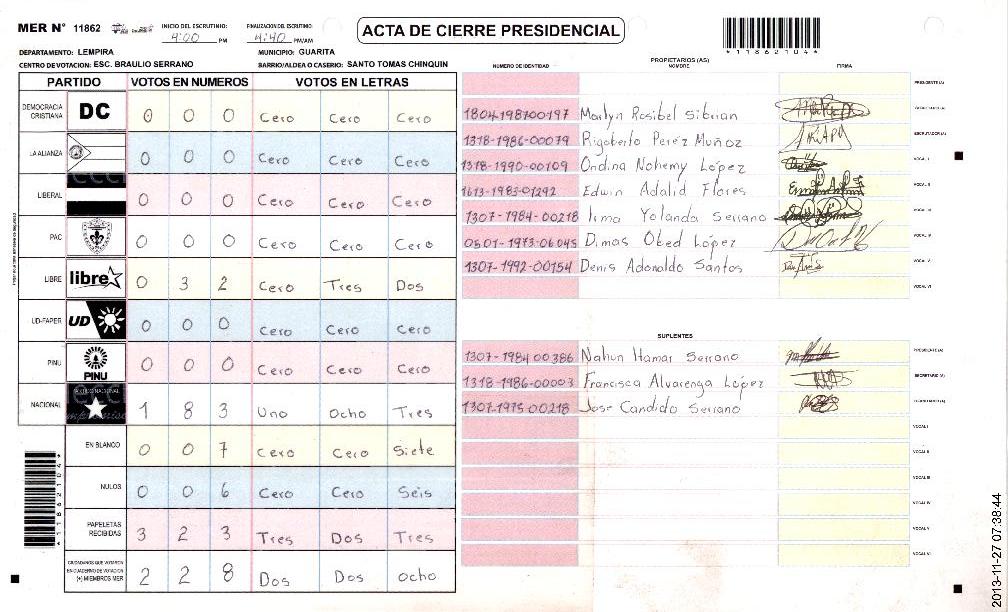 MER N° 11862
INICIO DEL ESCRUTINIO: 4:00 PM
FINALIZACION DEL ESCRUTINIO: 4:40 PM/AM
ACTA DE CIERRE PRESIDENCIAL
*11862104*
DEPARTAMENTO: LEMPIRA
MUNICIPIO: GUARITA
CENTRO DE VOTACION: ESC. BRAULIO SERRANO
BARRIO/ALDEA O CASERIO: SANTO TOMAS CHINQUIN
PARTIDO VOTOS EN NUMEROS VOTOS EN LETRAS
DEMOCRACIA CRISTIANA DC 0 0 0 Cero Cero Cero
LA ALIANZA 0 0 0 Cero Cero Cero
LIBERAL 0 0 0 Cero Cero Cero
PAC 0 0 0 Cero Cero Cero
LIBRE libre 0 3 2 Cero Tres Dos
UD-FAPER UD 0 0 0 Cero Cero Cero
PINU PINU 0 0 0 Cero Cero Cero
NACIONAL 1 8 3 Uno Ocho Tres
EN BLANCO 0 0 7 Cero Cero Siete
NULOS 0 0 6 Cero Cero Seis
PAPELETAS RECIBIDAS 3 2 3 Tres Dos Tres
CIUDADANOS QUE VOTARON EN CUADERNO DE VOTACION (+) MIEMBROS MER 2 2 8 Dos Dos Ocho
PROPIETARIOS (AS)
NUMERO DE IDENTIDAD NOMBRE FIRMA
PRESIDENTE (A)
1804-1987-00197 Marlyn Rosibel Sibrian
1318-1986-00079 Rigoberto Perez Muñoz ESCRUTADOR (A)
1318-1990-00109 Ondina Nohemy López VOCAL I
1613-1983-01292 Edwin Adalid Flores VOCAL II
1307-1984-00218 Irma Yolanda Serrano VOCAL III
0501-1973-06045 Dimas Obed López VOCAL IV
1307-1992-00154 Denis Adonaldo Santos VOCAL V
VOCAL VI
SUPLENTES
1307-1984-00386 Nahun Hamar Serrano PRESIDENTE (A)
1318-1986-00003 Francisca Alvarenga López SECRETARIO (A)
1307-1975-00218 Jose Candido Serrano ESCRUTADOR (A)
VOCAL I
VOCAL II
VOCAL III
VOCAL IV
VOCAL V
VOCAL VI
2013-11-27 07:38:44